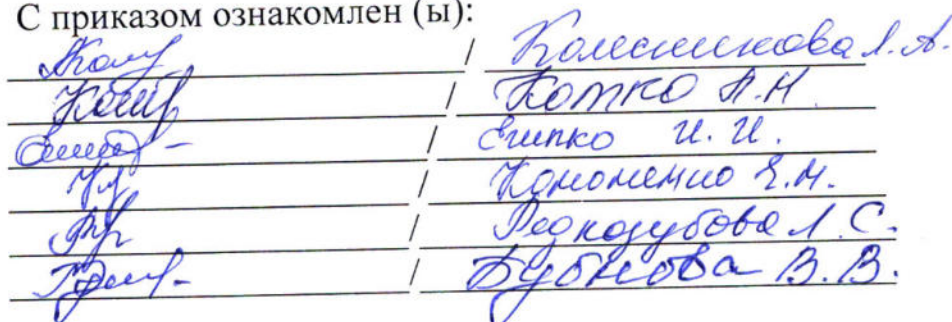 С приказом ознакомлен (ы):
/ Колесникова Л. А.
/ Котко А. Н.
/ Египко И. И.
/ Кононенко Е. Н.
/ Редкозубова Л. С.
/ Бубнова В. В.